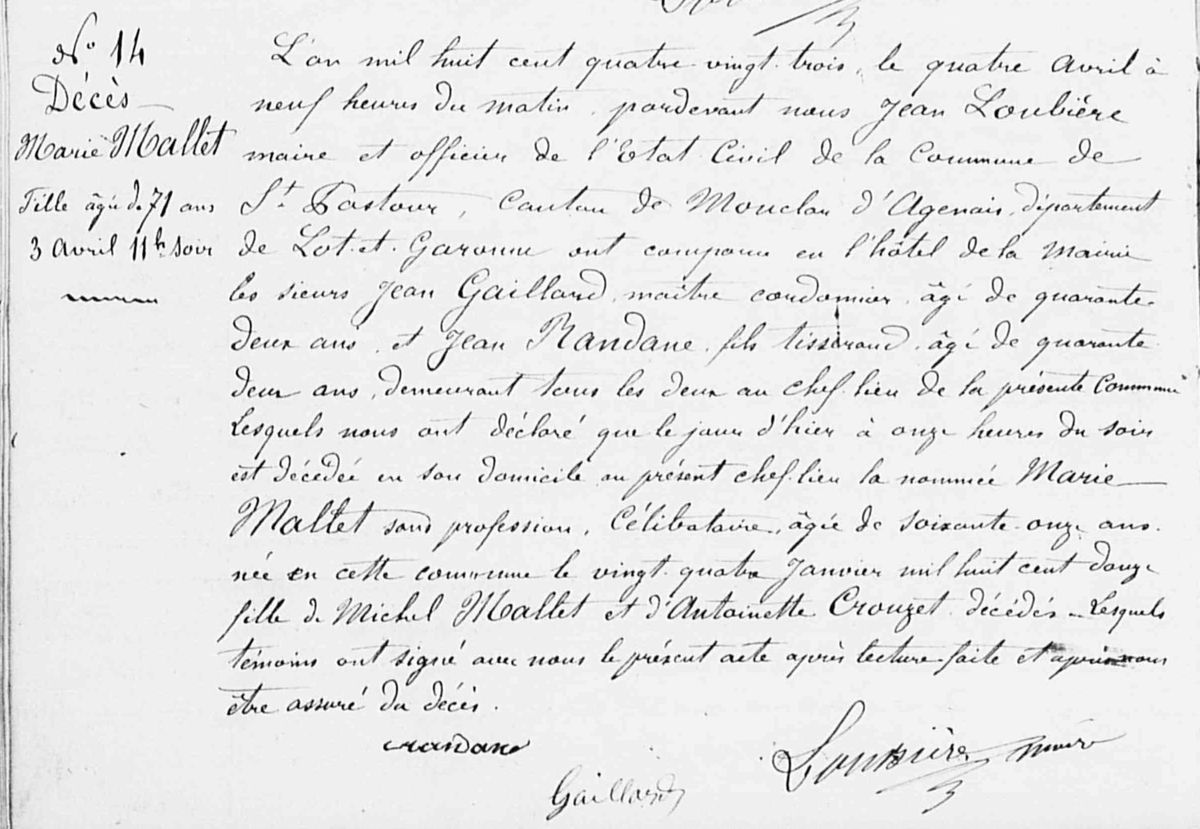 N° 14
Décès
Marie Mallet
Fille âgée de 71 ans
3 Avril 11h soir
L'an mil huit cent quatre vingt trois, le quatre Avril à
neuf heures du matin, pardevant nous Jean Loubière
maire et officier de l'Etat Civil de la Commune de
St Pastour, Canton de Monclar d'Agenais, département
de Lot-et-Garonne ont comparu en l'hôtel de la Mairie
les sieurs Jean Gaillard, maître cordonnier, âgé de quarante
deux ans, et Jean Randane, fils tisserand, âgé de quarante
deux ans, demeurant tous les deux au chef-lieu de la présente Commune
Lesquels nous ont déclaré que le jour d'hier à onze heures du soir
est décédée en son domicile au présent chef-lieu la nommée Marie
Mallet sans profession, Célibataire, âgée de soixante-onze ans
née en cette commune le vingt-quatre Janvier mil huit cent douze
fille de Michel Mallet et d'Antoinette Crouzet décédés. Lesquels
témoins ont signé avec nous le présent acte après lecture faite et après nous
être assuré du décès.
Randane
Gaillard
Loubière maire